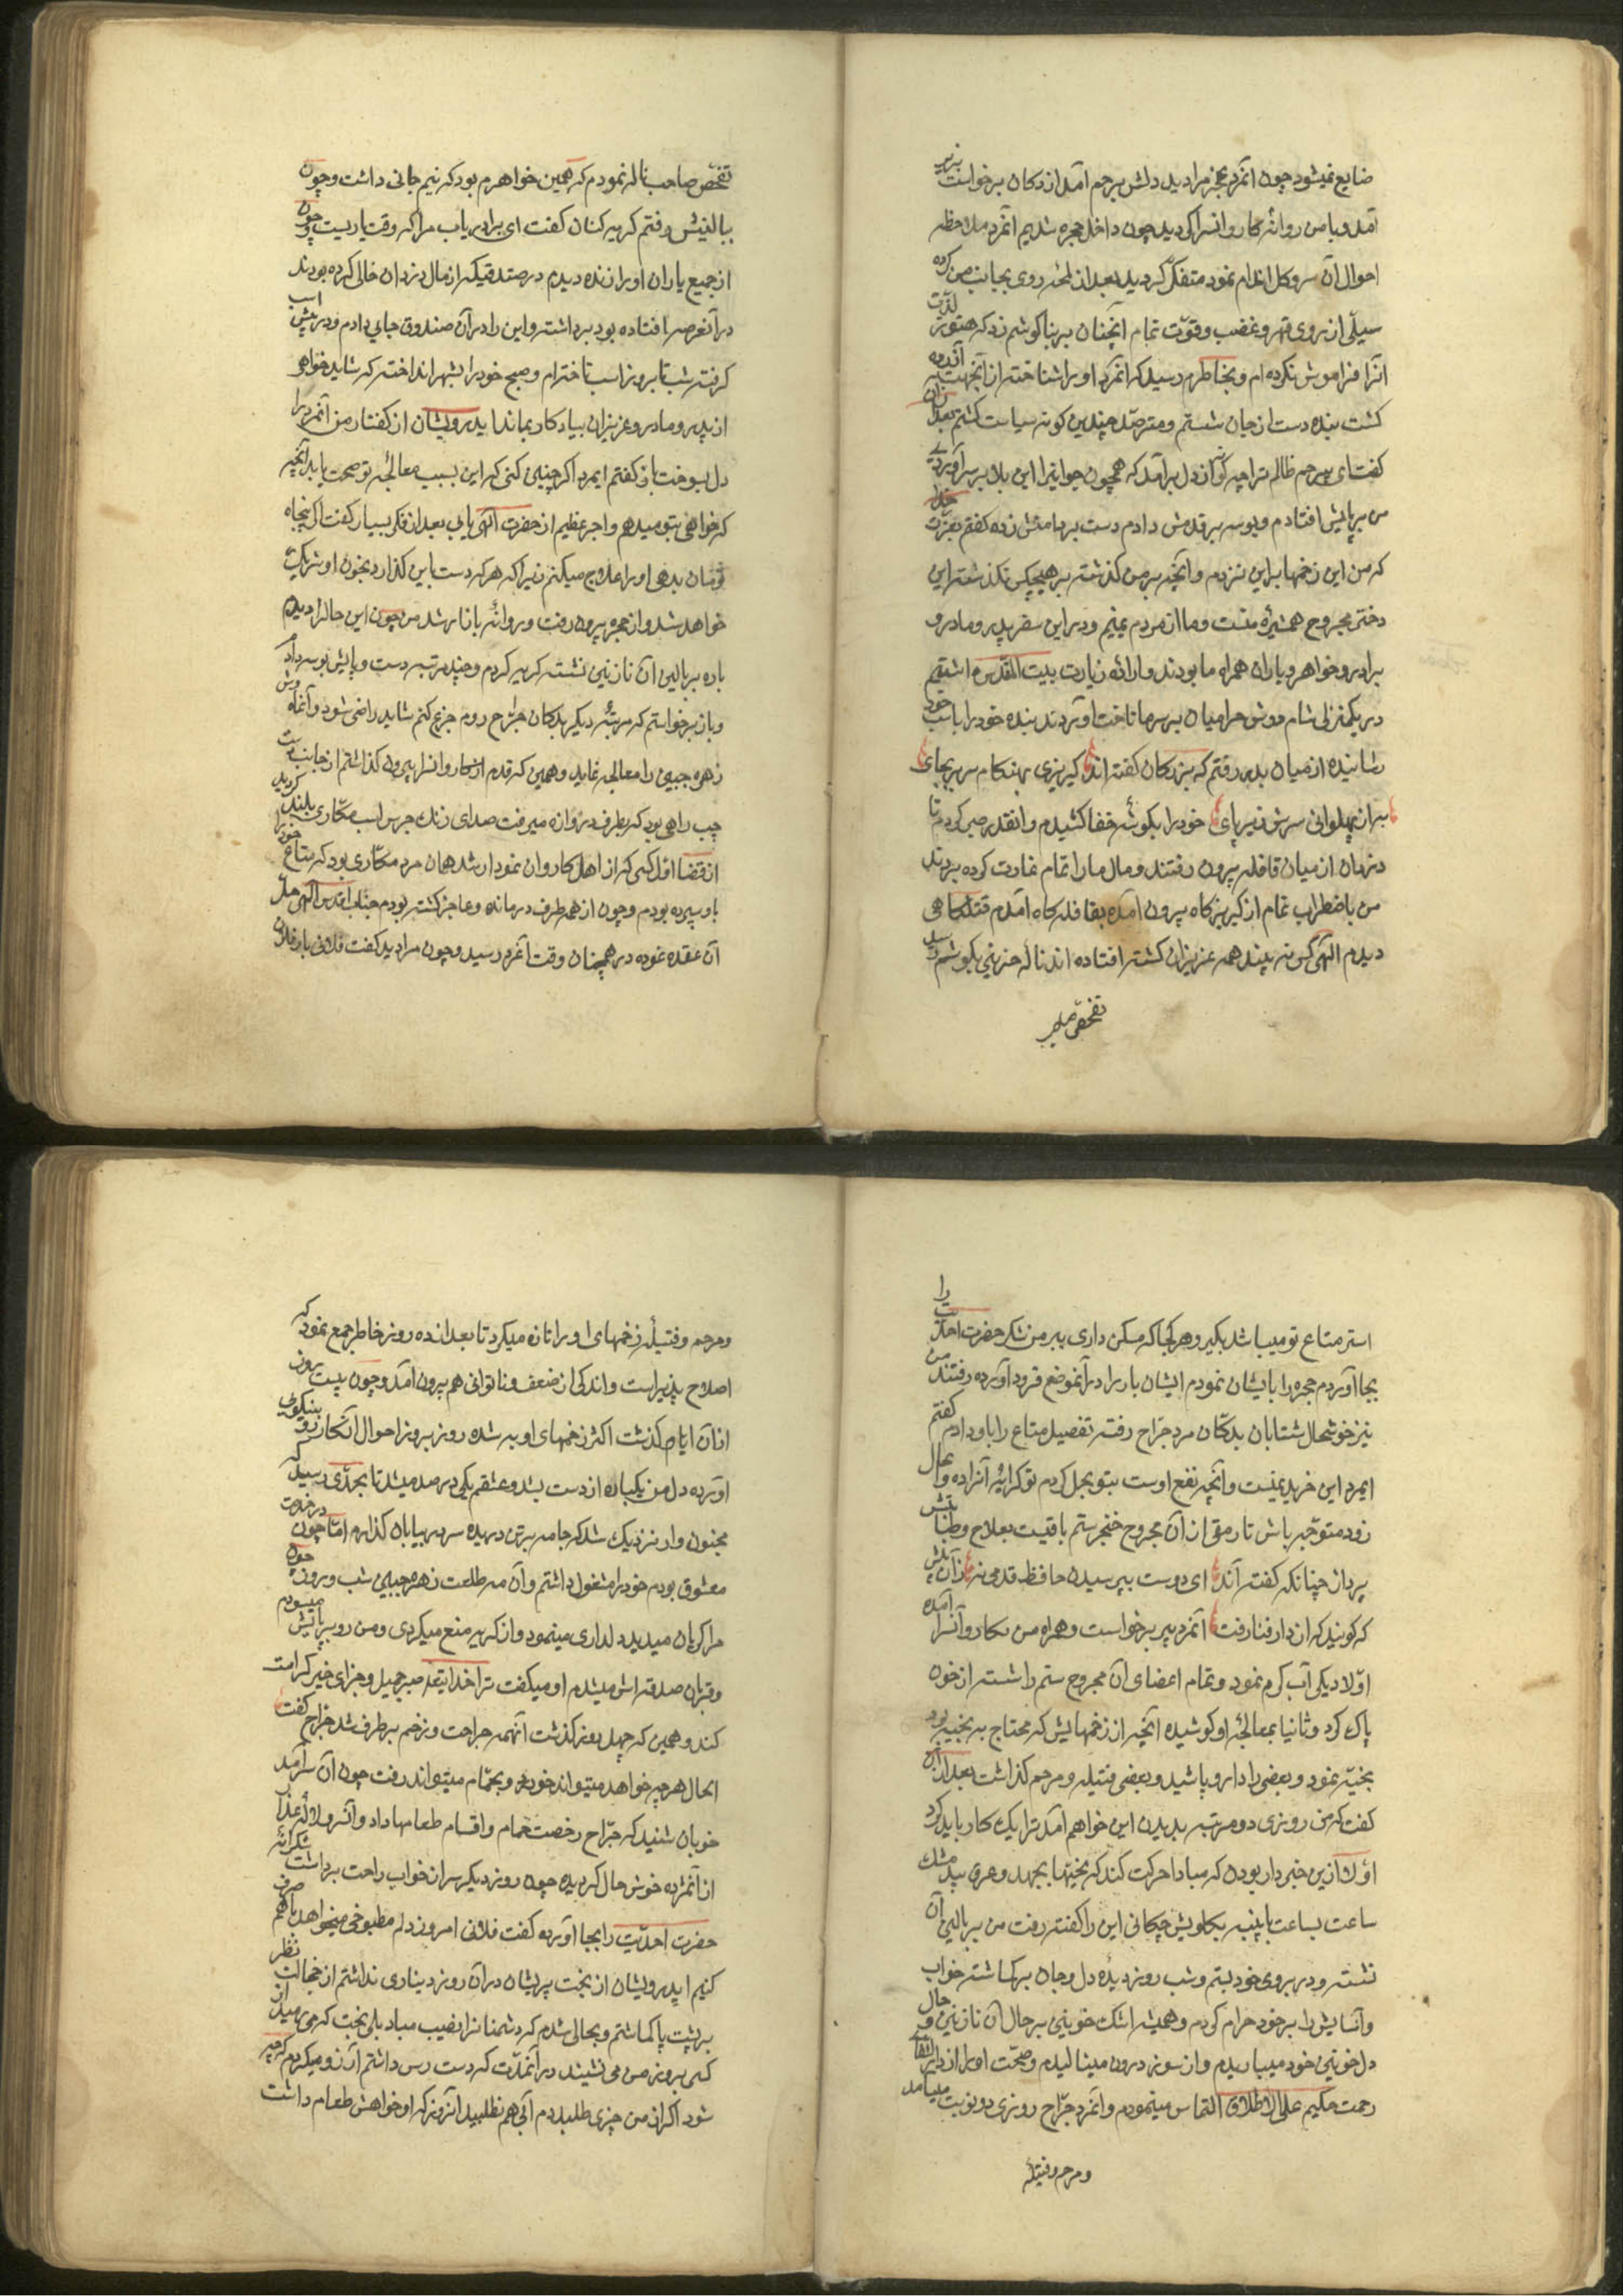 ضایع نمیشود چون آنمرد عجز مرا دید دلش برحم آمد از دکان برخواست بزیر
آمد و با من روانهٔ کاروانسرا گردید چون داخل حجره شدیم آنمرد ملاحظه
احوال آن سرو گل اندام نمود متفکر گردید بعد از لمحهٔ روی بجانب من کرده
سیلّی از روی قهر و غضب و قوّت تمام آنچنان بر بناگوشم زد که هنوز لذّت
آنرا فراموش نکرده‌ام و بخاطرم رسید که آنمرد او را شناخته از آنجهت آزرده
گشت بنده دست از جان شستم و مترصّد چندین گونه سیاست گشتم بعد از آن
گفت ای بیرحم ظالم ترا چه گونه از دل برآمد که همچون جوانیرا این بلا بر سر آوردی
من بر پایش افتادم و بوسه بر قدمش دادم دست بدامنش زده گفتم بعزّت خدا
که من این زخمها براین نزدم و آنچه بر من گذشته بر هیچکس نگذشته این
دختر مجروح همشیرهٔ منست و ما از مردم یمنیم و در این سفر پدر و مادر و
برادر و خواهر و یاران همراه ما بودند و ارادهٔ زیارت بیت المقدس داشتیم
در یکمنزلی شام دوش حرامیان بر سر ما تاخت آوردند بنده خود را باسب خود
رسانیده از میان بدر رفتم که بزرگان گفته‌اند گریزی بهنگام سر بر بجای
به از پهلوانی سرش زیر پای خود را بگوشهٔ خفا کشیدم و آنقدر صبر کردم تا
دزدان از میان قافله بیرون رفتند و مال ما را تمام غارت کرده بردند
من باضطراب تمام از گریزگاه بیرون آمده بقافله گاه آمدم قتلگاهی
دیدم الهی کس نه بیند همه عزیزان کشته افتاده‌اند نالهٔ حزینی بگوشم رسید
تفحص صاحب
تفحص صاحب ناله نمودم که همین خواهرم بود که نیم جانی داشت و چون
ببالینش رفتم گریه کنان گفت ای برادر دریاب مرا که وقت یاریست چون
از جمیع یاران او را زنده دیدم در صندوقیکه از مال دزدان خالی کرده بودند
در آنعرصه افتاده بود برداشته و این را در آن صندوق جای دادم و در پیش اسب
گرفته شب تا بروز اسب تاخته‌ام و صبح خود را بشهر انداخته که شاید خواهر
از پدر و مادر و عزیزان بیادگار بماند ایدرویشان از گفتار من آنمرد را
دل بسوخت باز گفتم ایمرد اگر چنین کنی که این بسبب معالجهٔ تو صحت یابد آنچه
که خواهی بتو میدهم و اجر عظیم از حضرت الهی یابی بعد از فکر بسیار گفت اگر پنجاه
تومان بدهی او را علاج میکنم زیرا که هر که دست باین گذارد بخون او شریک
خواهد شد و از حجره بیرون رفت و روانهٔ بازار شد من چون این حال را دیدم
باره ببالین آن نازنین نشسته گریه کردم و چند مرتبه دست و پایش بوسه دادم
و باز برخواستم که مرتبهٔ دیگر بدکان جرّاح روم جزع کنم شاید راضی شود و آنماه وش
زهره جبین را معالجه نماید و همین که قدم از کاروانسرا بیرون گذاشتم از جانب دست
چپ راهی بود که بطرف دروازه میرفت صدای زنگ جرس اسب مکاری بلند گردید
از قضا اول کسی که از اهل کاروان نمودار شد همان مرد مکاری بود که متاع خود را
باو سپرده بودم و چون از همه طرف درمانده و عاجز گشته بودم جناب اقدس الهی حلّ
آن عقده نموده در همچنان وقت آنمرد رسید و چون مرا دید گفت فلانی بار فلان
استر متاع تو میباشد بگیر و هر کجا که مسکن داری ببر من شکر حضرت احدّیت را
بجا آوردم حجره را بایشان نمودم ایشان بار را در آنموضع فرود آورده رفتند من
نیز خوشحال شتابان بدکّان مرد جرّاح رفته تفصیل متاع را باو دادم گفتم
ایمرد این خرید یمنیست و آنچه نفع اوست بتو بحل کردم تو کرایهٔ آنرا ده و الحال
زود متوّجه باش تا رمقی از آن مجروح خنجر ستم باقیست بعلاج و طبابتش
پرداز چنانکه گفته‌اند ای دوست بپرسیدن حافظ قدمی نه زان پیش
که گویند که از دار فنا رفت آنمرد پیر برخواست و همراه من بکاروانسرا آمده
اوّلا دیگی آب گرم نمود و تمام اعضای آن مجروح ستم را شسته از خون
پاک کرد و ثانیا بمعالجهٔ او کوشیده آنچه از زخمهایش که محتاج به بخیه بود
بخیّه نمود و بعضی را دارو پاشید و بعضی فتیله و مرحم گذاشت بعد از آن
گفت که من روزی دو مرتبه بدیدن این خواهم آمد ترا یک کار باید کرد
اوّلا از این خبردار بودن که مبادا حرکت کند که بخیّها بجهد و عرق بید مشک
ساعت بساعت با پنبه بگلویش چکانی این را گفته رفت من ببالین آن
نشسته و در بروی خود بستم و شب و روز دیدهٔ دل و جان بر گماشته خواب
و آسایش را بر خود حرام کردم و همیشه اشک خونین بر حال آن نازنین و حال
دل خونین خود میباریدم و از سوز درون مینالیدم و صحّت او را از دار الشفای
رحمت حکیم علی الاطلاق التماس مینمودم و آنمرد جرّاح روزی دو نوبت میآمد
و مرحم و فتیلهٔ
و مرحم و فتیلهٔ زخمهای او را تازه میکرد تا بعد از ده روز خاطر جمع نمود که
اصلاح پذیر است و اندکی از ضعف و ناتوانی هم بیرون آمد و چون بیست روز
از آن ایام گذشت اکثر زخمهای او به شده روز بروز احوال آن نگار رو بنیکوئی
آورده دل من یکباره از دست بشد و عشقم یکی در صد میشد تا بحدّی رسید که
مجنون وار نزدیک شد که جامه بر تن دریده سر ببیابان گذارم امّا چون در خدمت
معشوق بودم خود را مشغول داشتم و آن مه طلعت زهره جبین شب و روز چون
مرا گریان میدید دلداری مینمود و از گریه منع میکردی و من رو بر پایش میسودم
و قربان صدقه‌اش میشدم او میگفت ترا خدایتعالی صبر جمیل و جزای خیر کرامت
کند و همین که چهل روز گذشت آنهمه جراحت و زخم برطرف شد جرّاح گفت
الحال هر چه خواهد میتواند خورد و بحمّام میتواند رفت چون آن سرآمد
خوبان شنید که جرّاح رخصت حمام و اقسام طعامها داد و آنسرو لاله عذار
از آنمژده خوش حال گردیده چون روز دیگر سر از خواب راحت برداشت شکرانه
حضرت احدّیت را بجا آورده گفت فلانی امروز دلم مطبوخی میخواهد با هم صرف
کنیم ایدرویشان از بخت پریشان در آن روز دیناری نداشتم از خجالت نظر
بر پشت پا گماشتم و بحالی شدم که دشمنانرا نصیب مباد بلی بخت که می رمید از
کسی بروز من می نشیند در آنمدّت که دست رس داشتم آرزو میکردم که چه
شود اگر از من چیزی طلبد دم آبی هم نطلبید آنروز که او خواهش طعام داشت